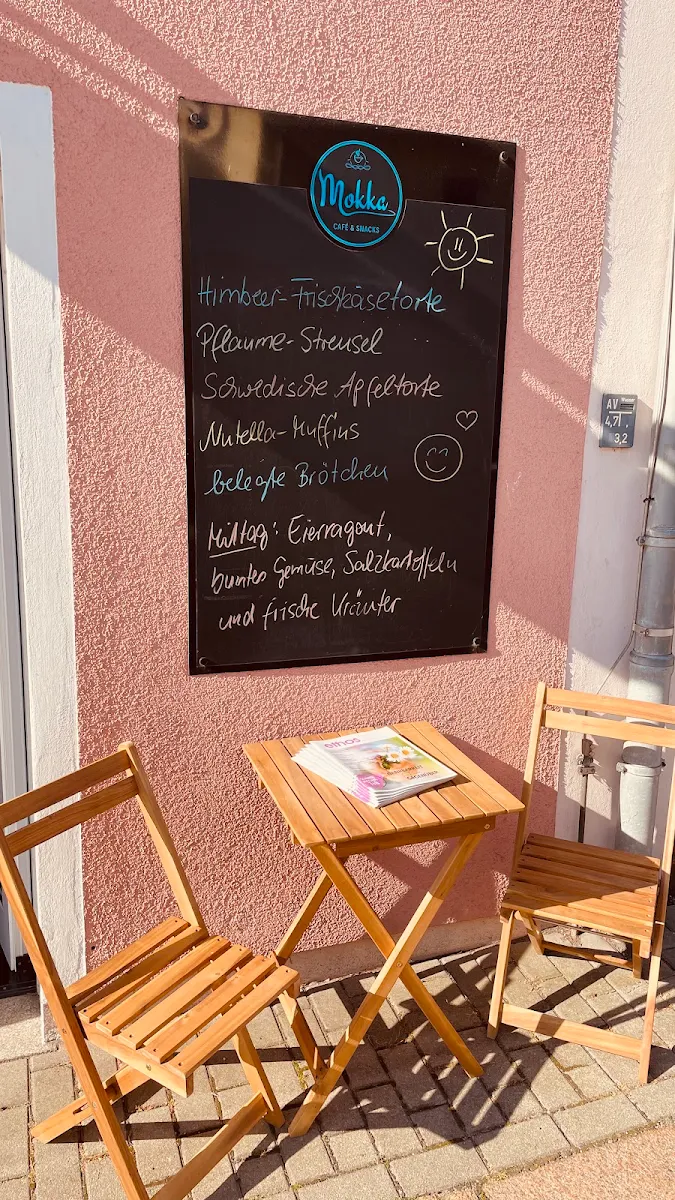 Mokka
CAFÉ & SNACKS
Himbeer-Frischkäsetorte
Pflaume-Streusel
Schwedische Apfeltorte
Nutella-Muffins
belegte Brötchen
Mittag: Eierragout,
buntes Gemüse, Salzkartoffeln
und frische Kräuter
AV
4,7
3,2
ethos